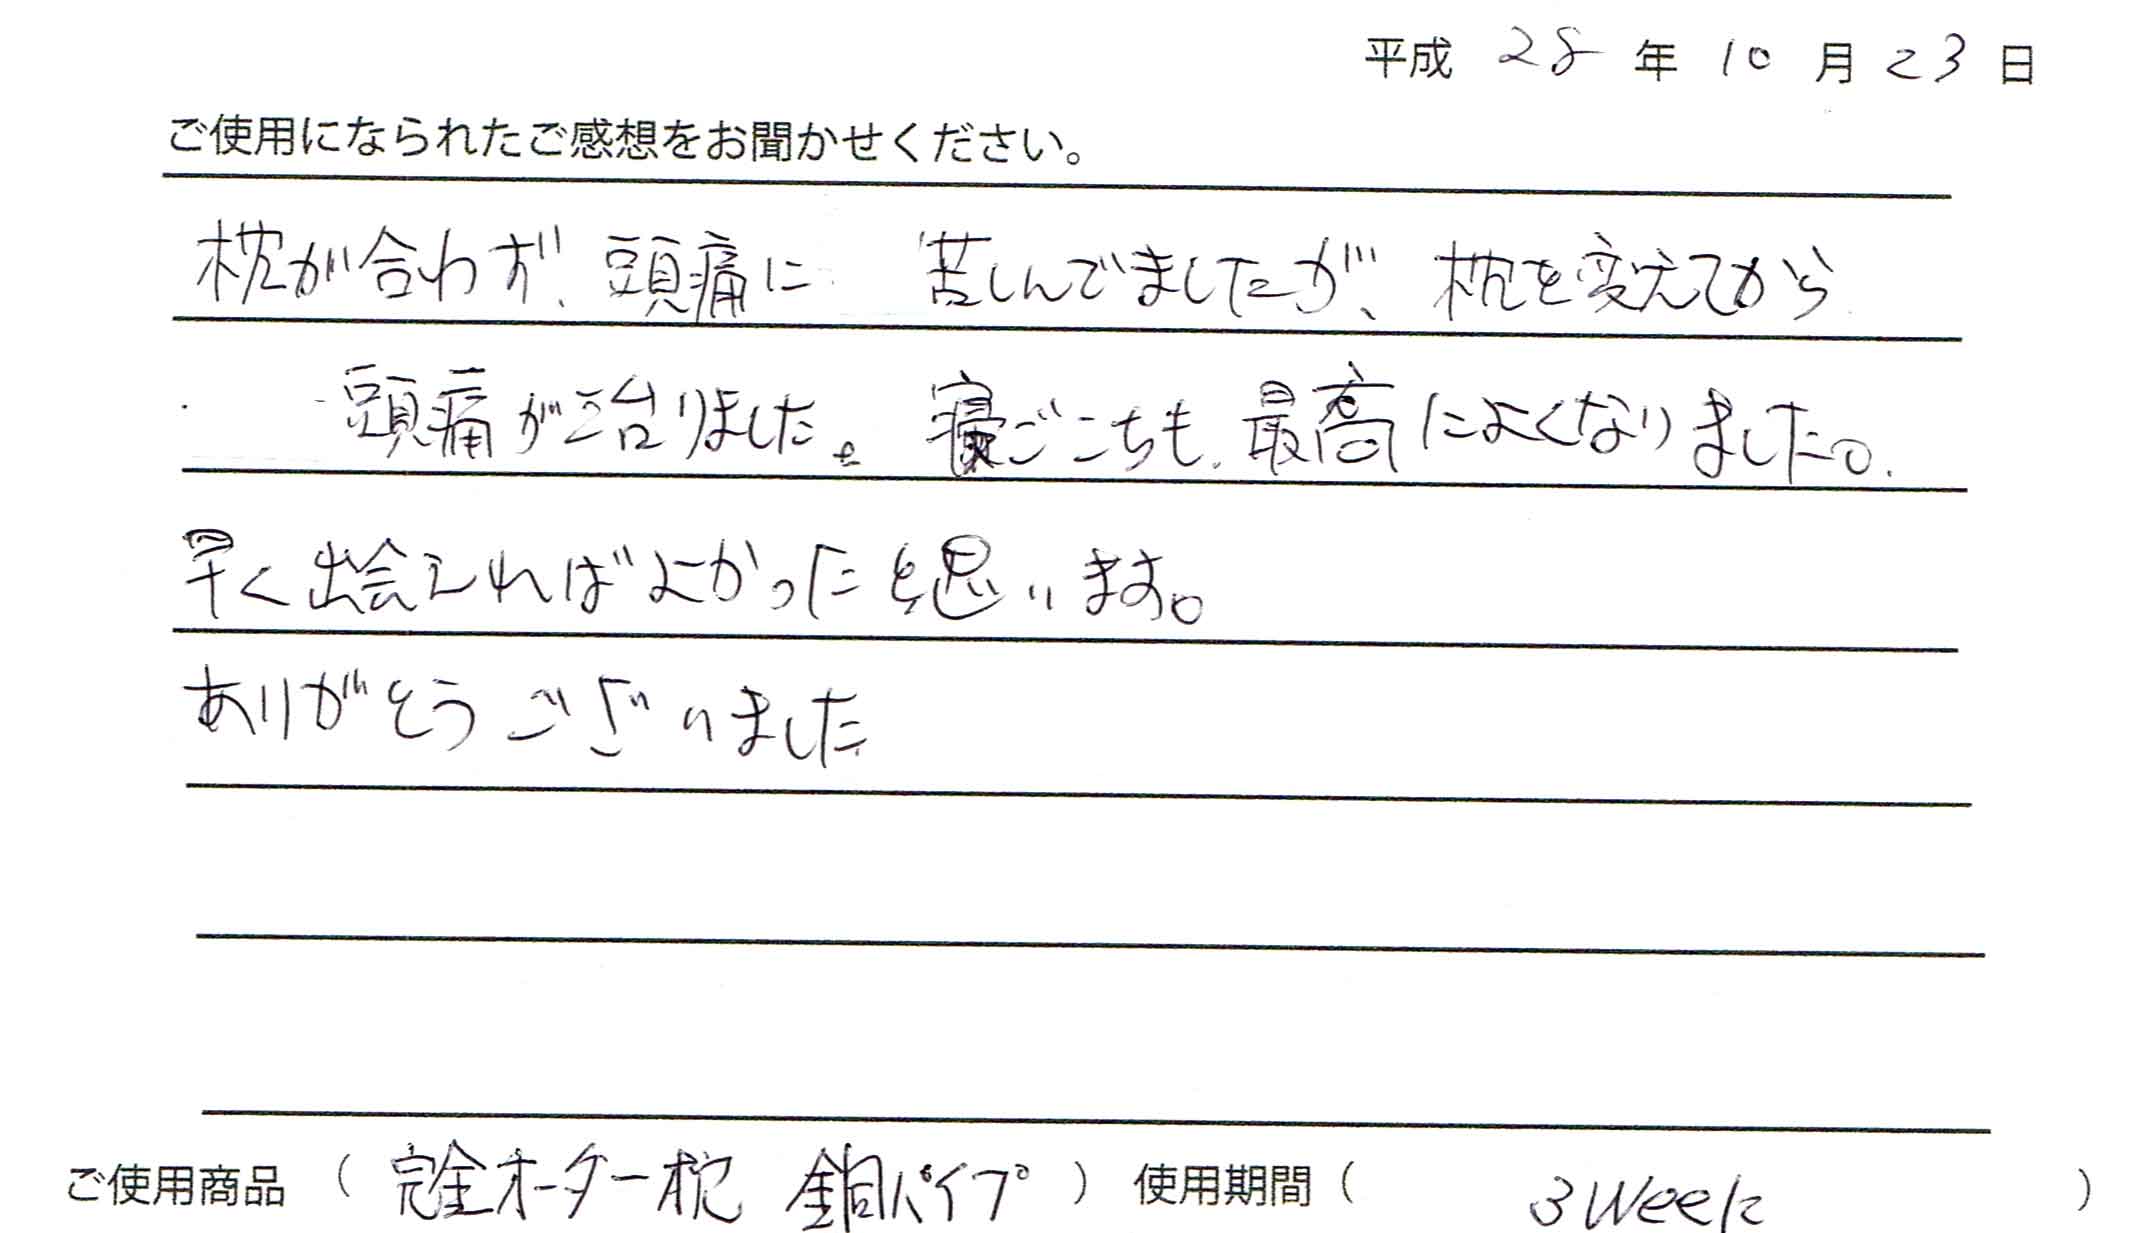 平成 28 年 10 月 23 日
ご使用になられたご感想をお聞かせください。
枕が合わず、頭痛に 苦しんでましたが、枕を変えてから
頭痛が治りました。寝ごこちも、最高によくなりました。
早く出会えればよかったと思います。
ありがとうございました
ご使用商品 ( 完全オーダー枕 銅パイプ ) 使用期間 ( 3Week )